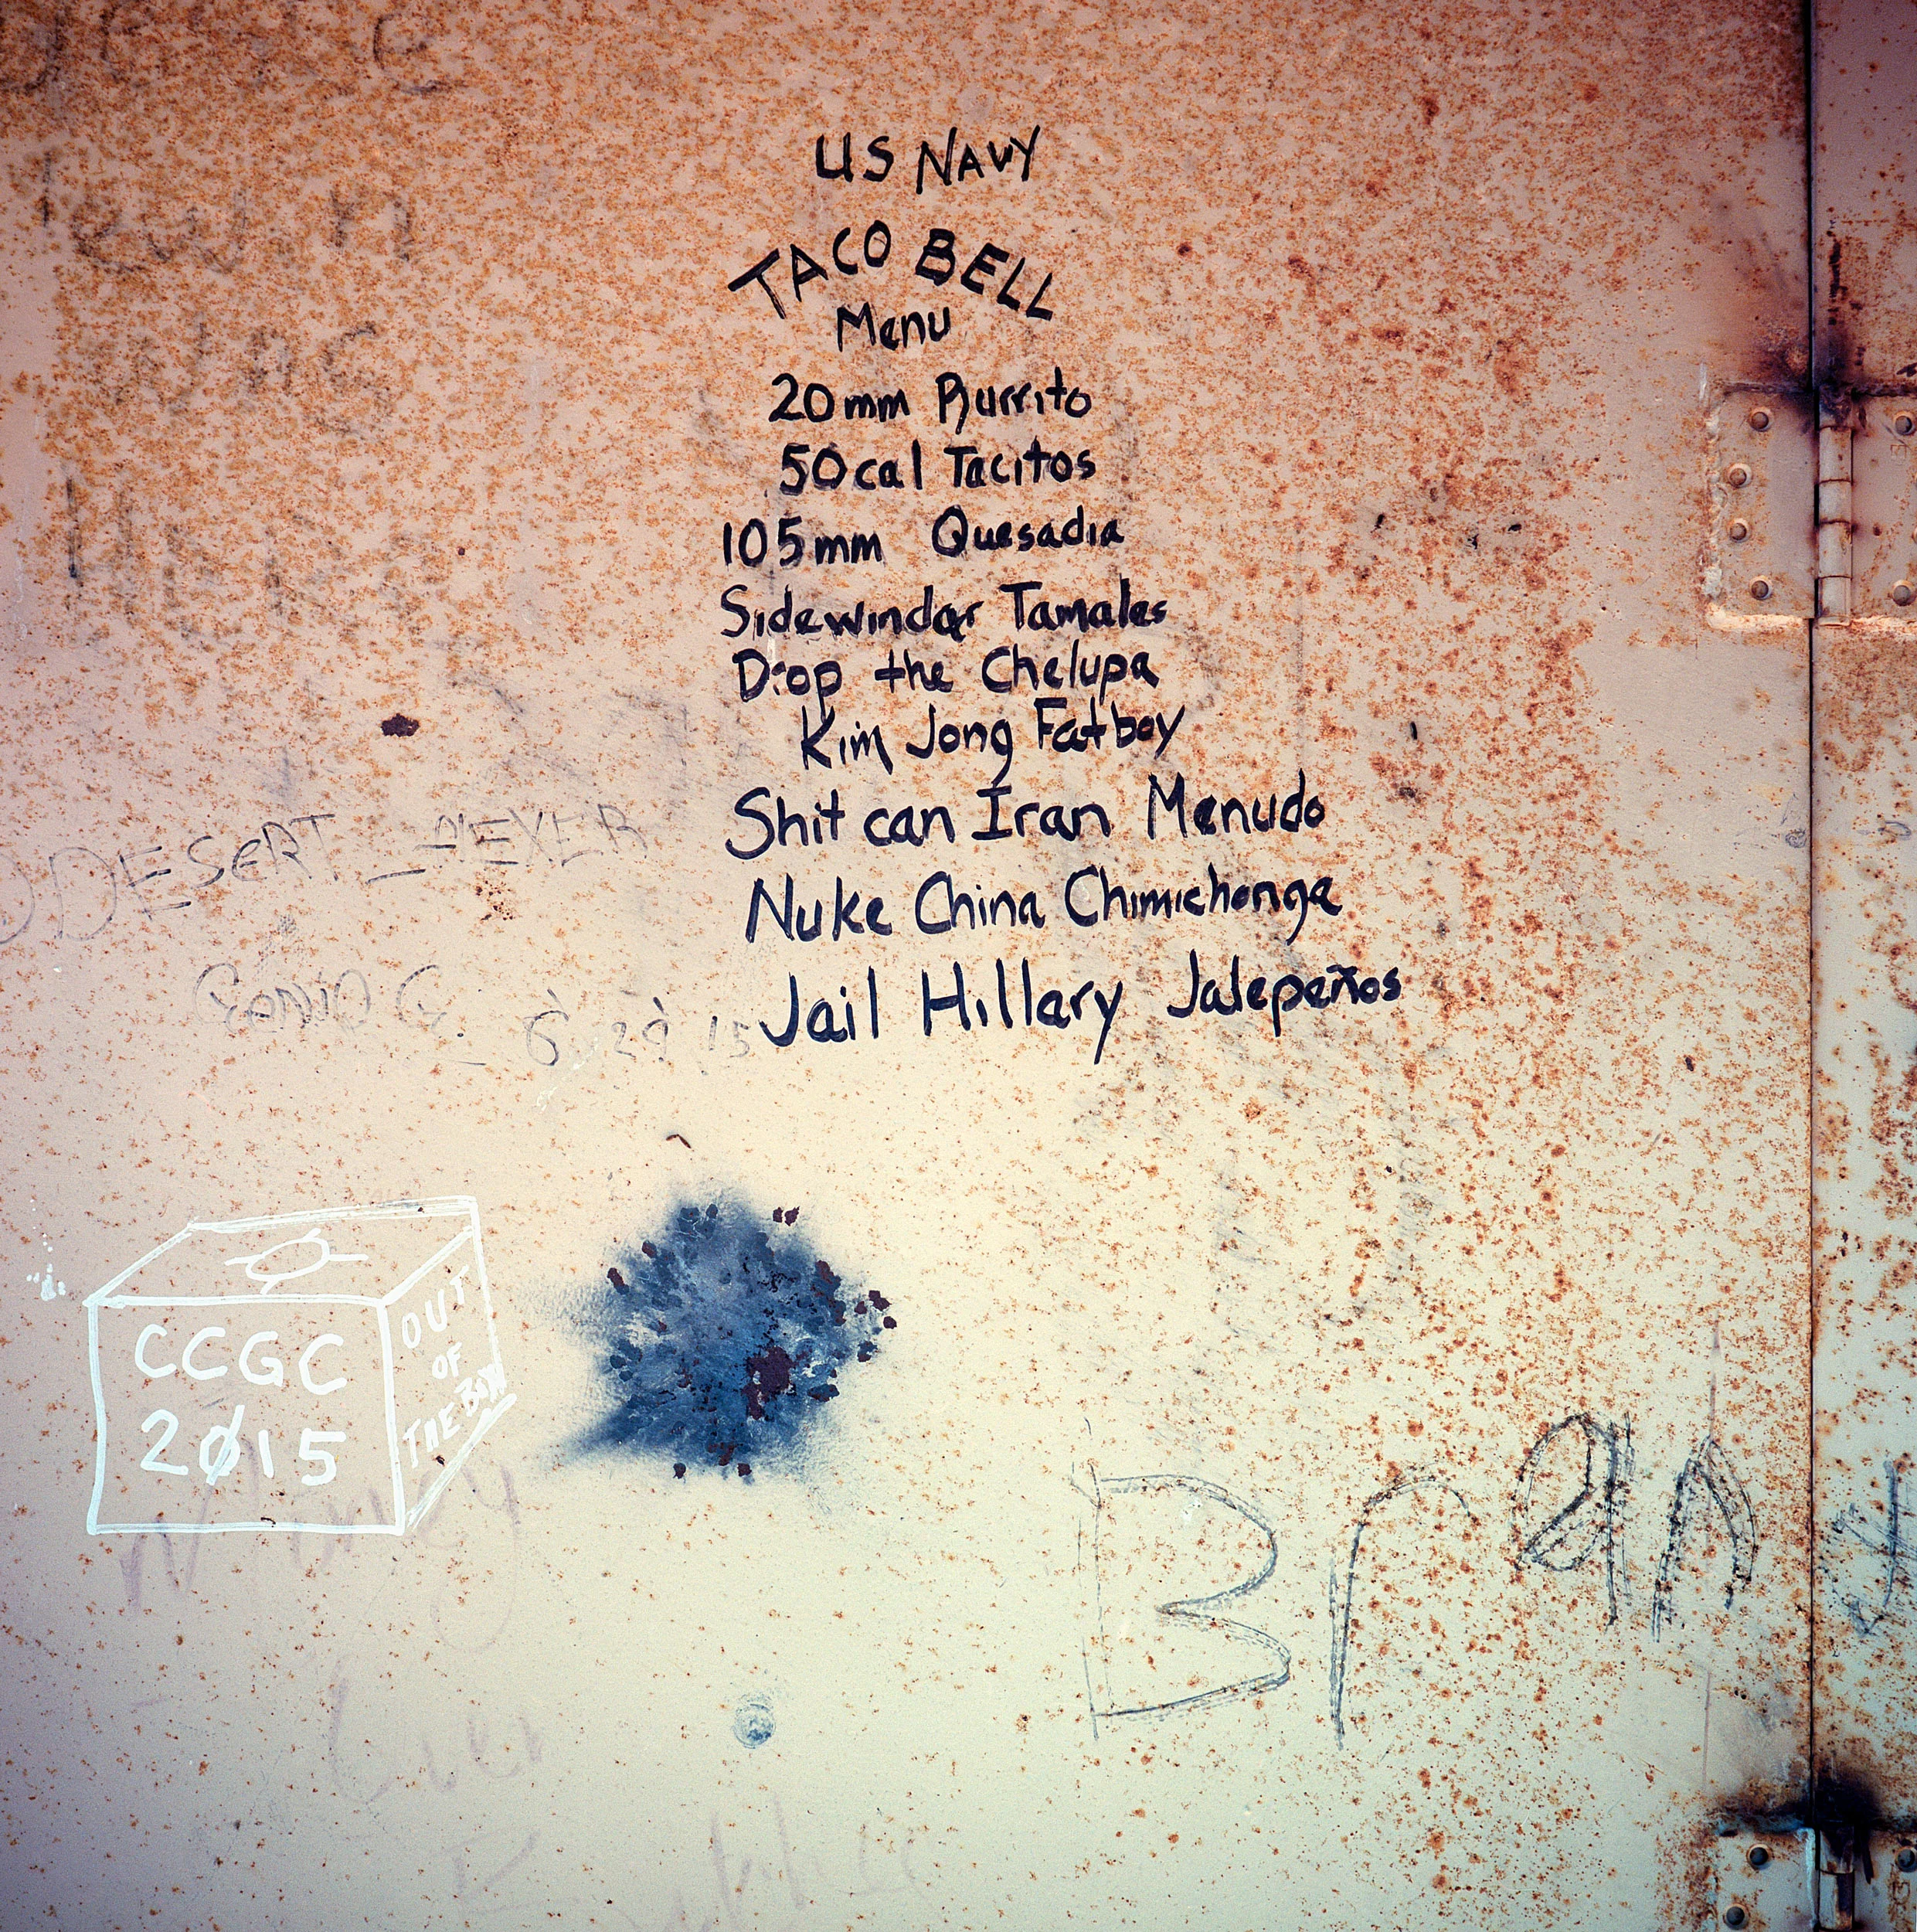 US NAVY
TACO BELL
Menu
20mm Burrito
50cal Tacitos
105mm Quesadia
Sidewinder Tamales
Drop the Chelupa
Kim Jong Fatboy
Shit can Iran Menudo
Nuke China Chimichonga
Jail Hillary Jalepeños
DESERT
6 29 15
CCGC
2015
OUT
OF
THE BOX
Bran